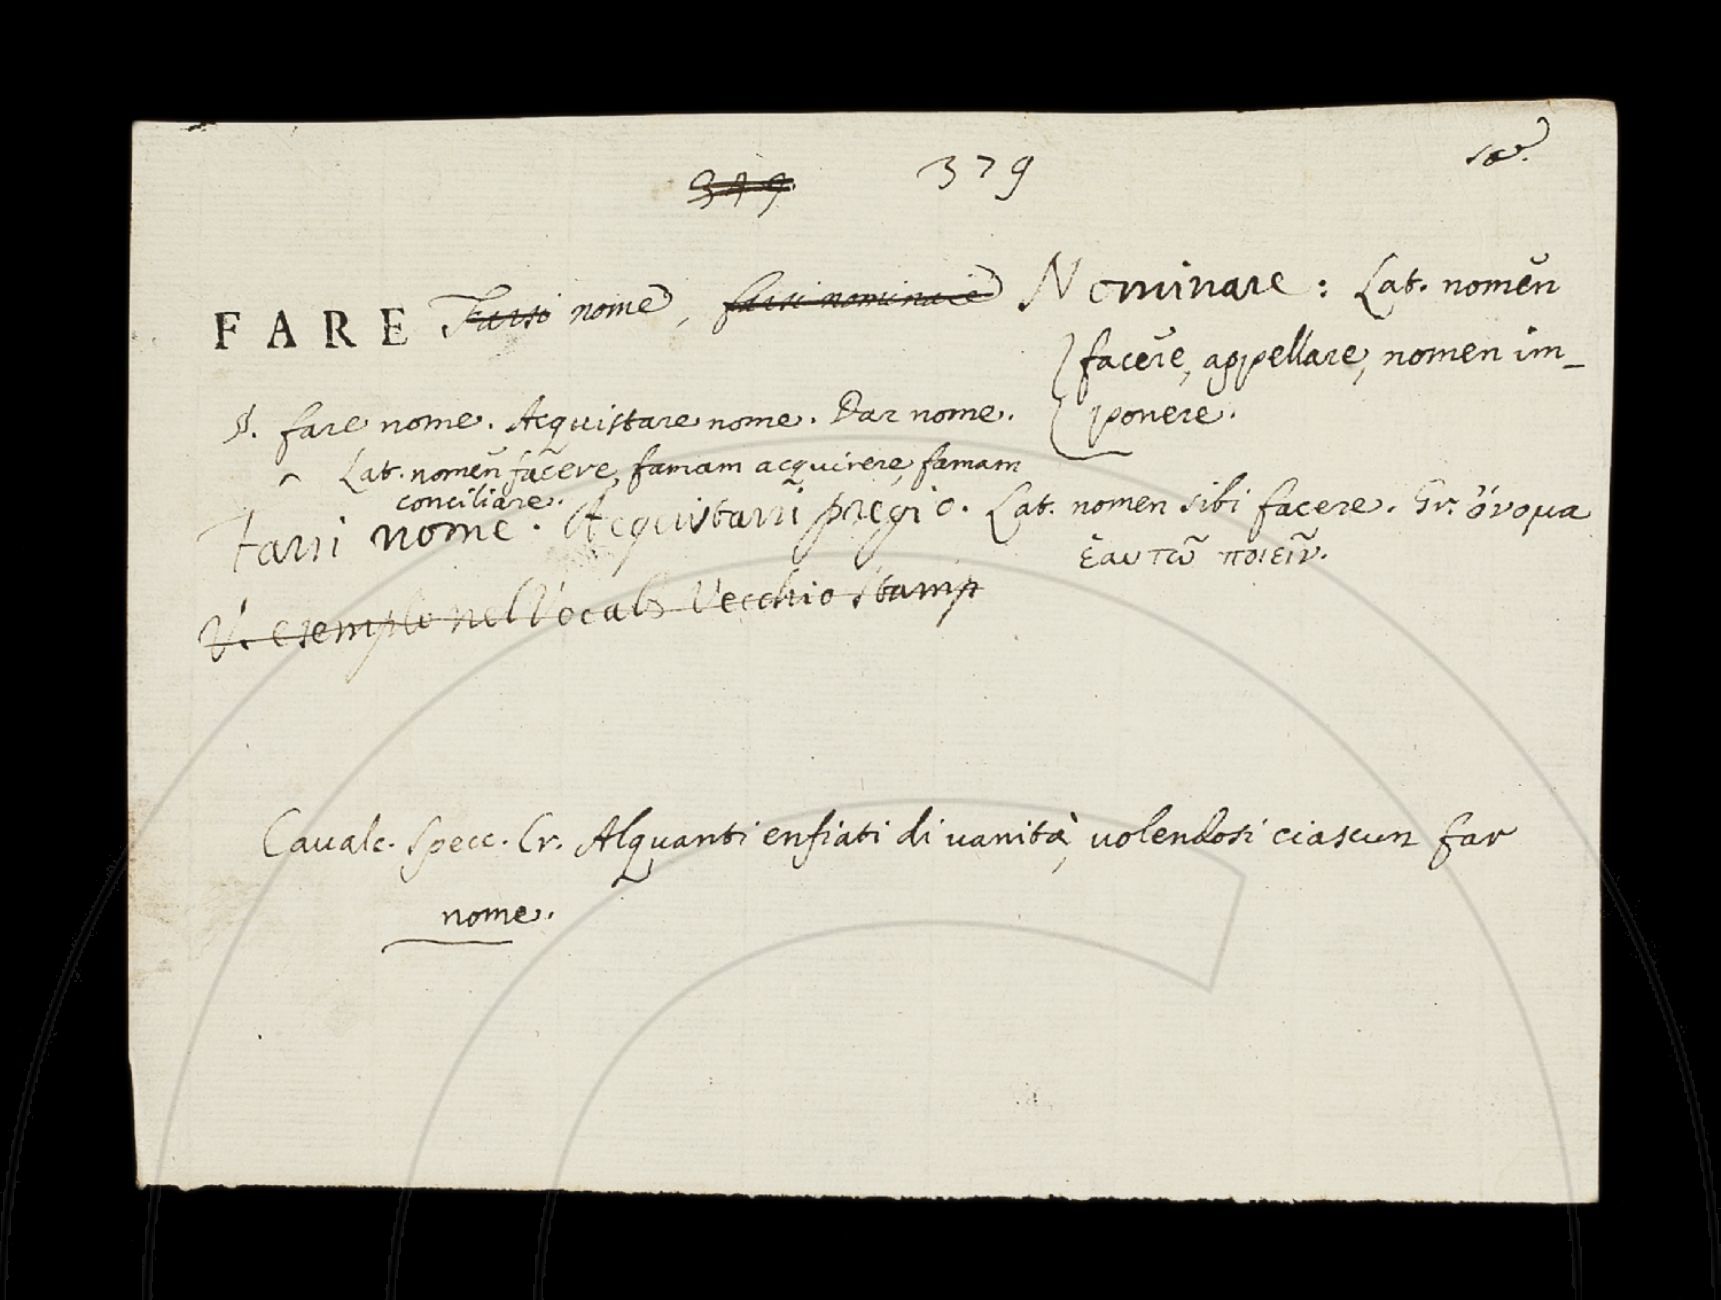 379 379
FARE Farsi nome, farsi nominare Nominare: Lat. nomen
facere, appellare, nomen im-
ponere.
§. fare nome. Acquistare nome. Dar nome.
Lat. nomen facere, famam acquirere, famam
conciliare.
Farsi nome. Acquistarsi pregio. Lat. nomen sibi facere. Gr. ὄνομα
ἑαυτῶ ποιεῖν.
V. esemplo nel Vocab. Vecchio Stamp
Cavalc. Specc. Cr. Alquanti enfiati di vanità, volendosi ciascun far
nome.